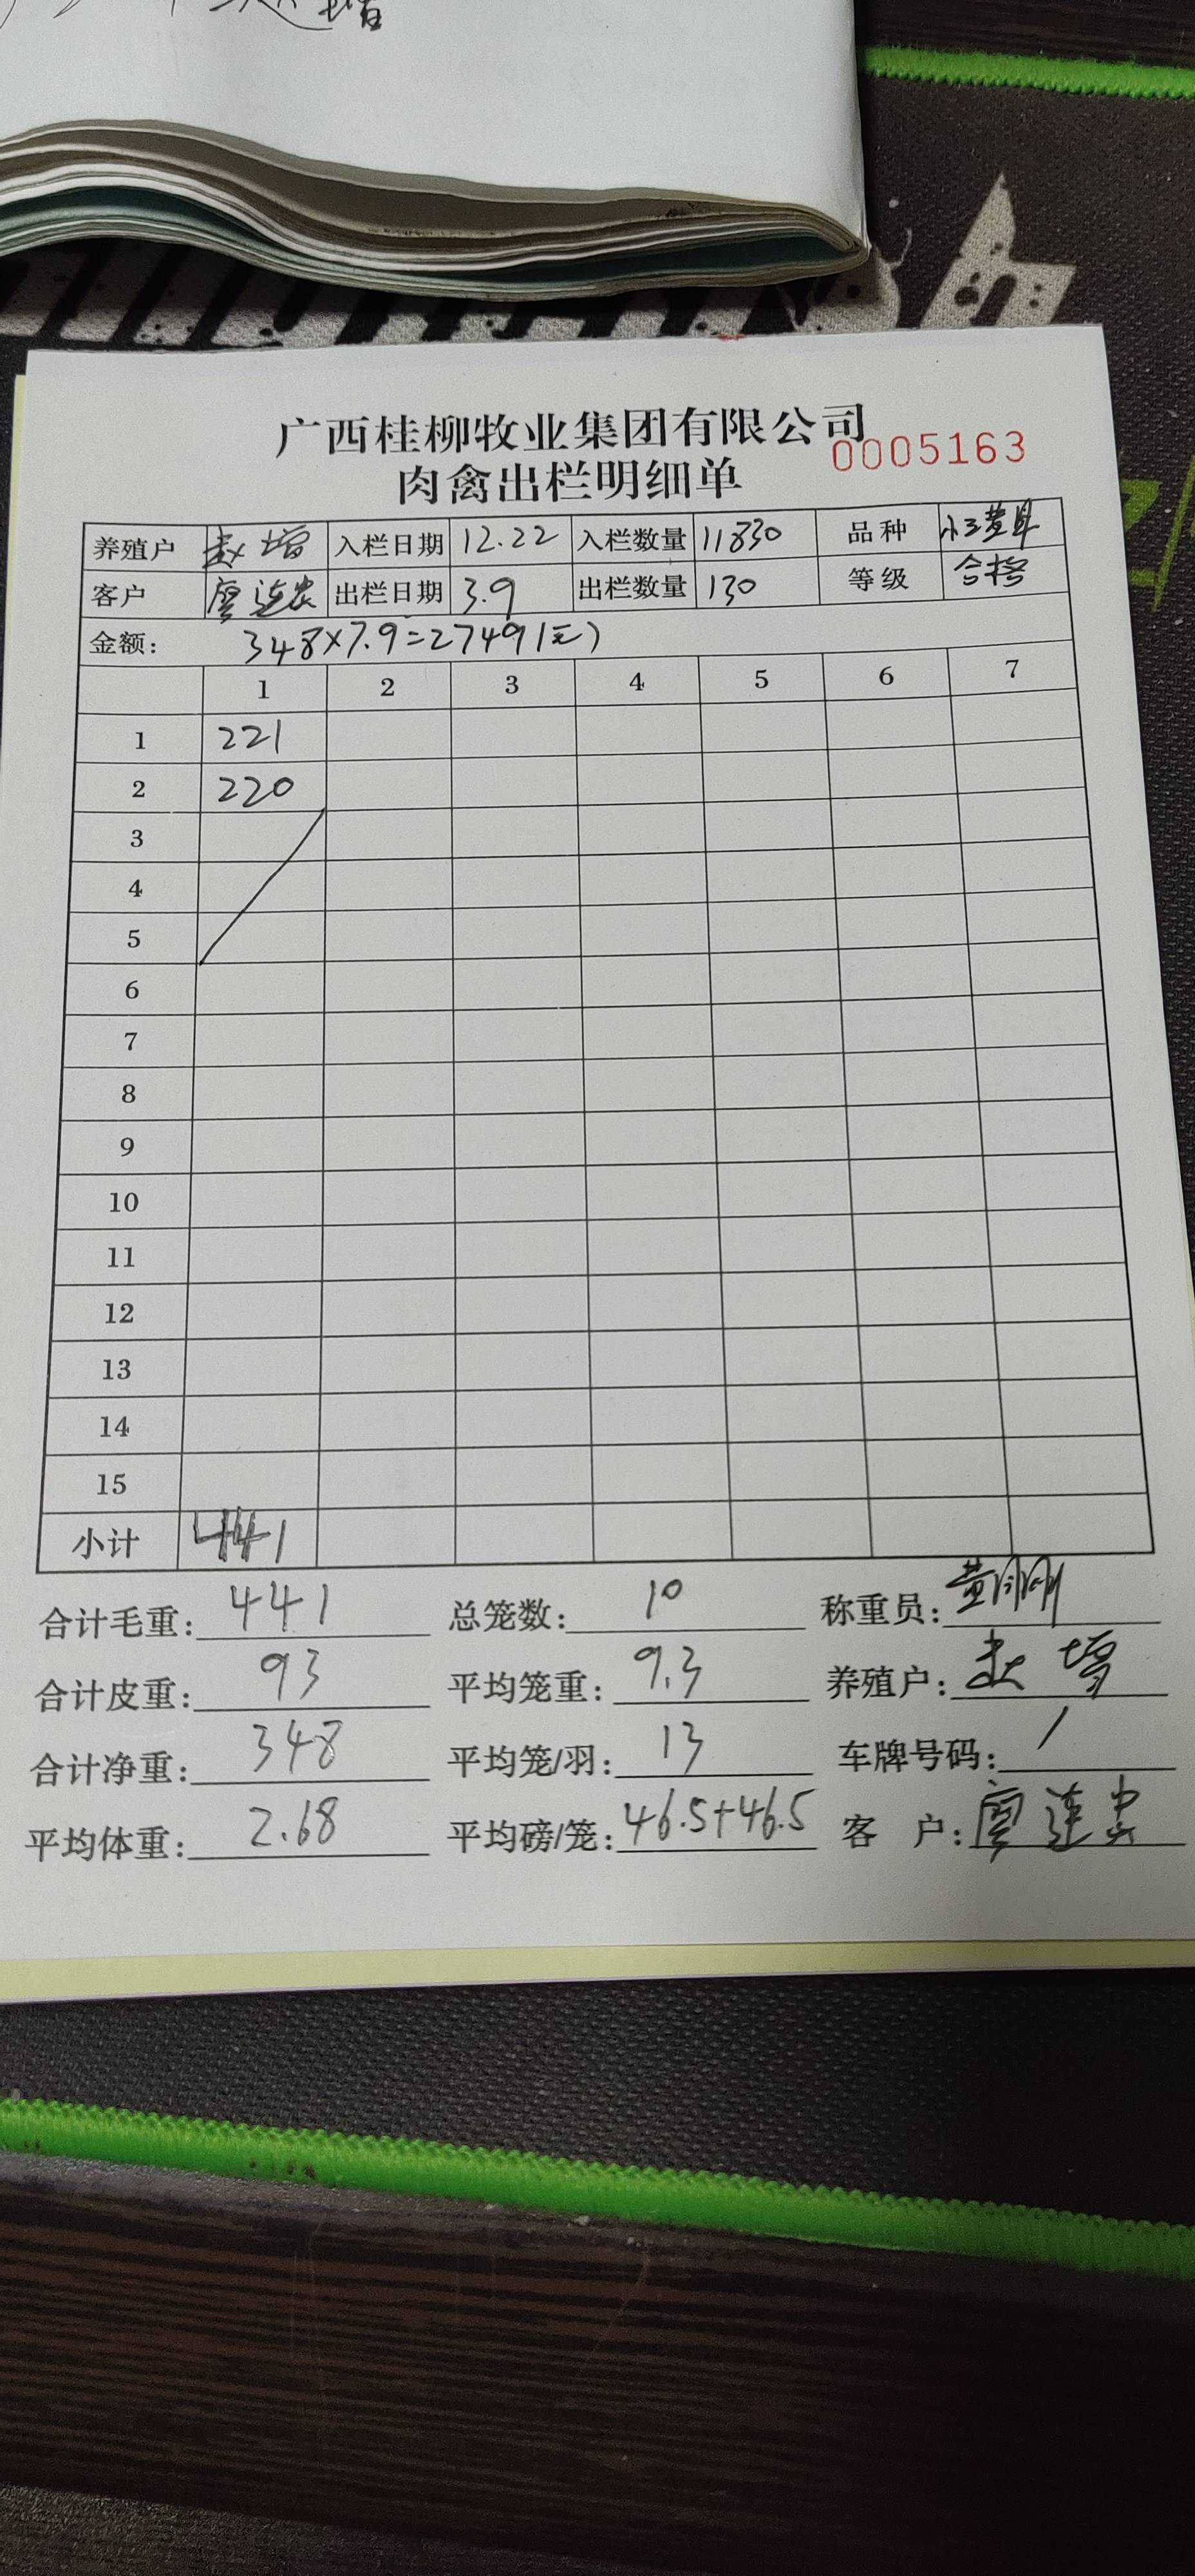 增
广西桂柳牧业集团有限公司
0005163
肉禽出栏明细单
养殖户 赵增 入栏日期 12.22 入栏数量 11830 品种
客户 廖连忠 出栏日期 3.9 出栏数量 130 等级 合格
金额: 348×7.9=2749(元)
1 2 3 4 5 6 7
1 221
2 220
3
4
5
6
7
8
9
10
11
12
13
14
15
小计 441
合计毛重: 441 总笼数: 10 称重员: 黄刚刚
合计皮重: 93 平均笼重: 9.3 养殖户: 赵增
合计净重: 348 平均笼/羽: 13 车牌号码: /
平均体重: 2.68 平均磅/笼: 46.5+46.5 客户: 廖连忠